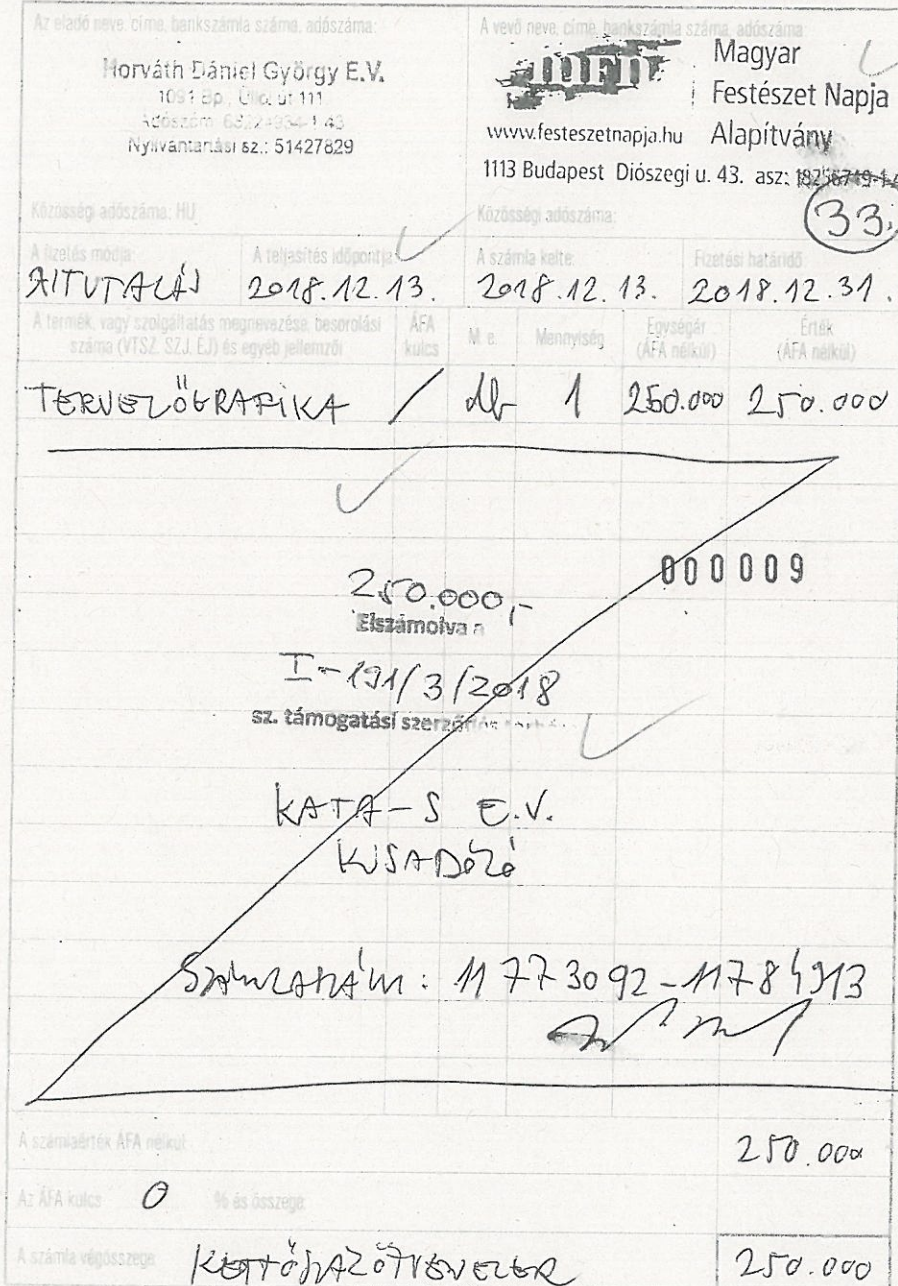 Az eladó neve, címe, bankszámla száma, adószáma:
Horváth Dániel György E.V.
1091 Bp., Üllői út 111
Adószám:
Nyilvántartási sz.: 51427829
Közösségi adószáma: HU
A vevő neve, címe, bankszámla száma, adószáma
MFN
Magyar
Festészet Napja
www.festeszetnapja.hu Alapítvány
1113 Budapest Diószegi u. 43. asz:
33.
Közösségi adószáma:
A fizetés módja: A teljesítés időpontja: A számla kelte: Fizetési határidő
ÁTUTALÁS 2018.12.13. 2018.12.13. 2018.12.31.
A termék, vagy szolgáltatás megnevezése, besorolási száma (VTSZ, SZJ, ÉJ) és egyéb jellemzői ÁFA kulcs M. e. Mennyiség Egységár (ÁFA nélkül) Érték (ÁFA nélkül)
TERVEZŐGRAFIKA / db 1 250.000 250.000
000009
250.000,-
Elszámolva a
I-191/3/2018
sz. támogatási
KATA-S E.V.
KISADÓZÓ
SZÁMLASZÁM: 11773092-11784913
A számlaérték ÁFA nélkül: 250.000
Az ÁFA kulcs 0 % és összege:
A számla végösszege: KETTŐSZÁZÖTVENEZER 250.000